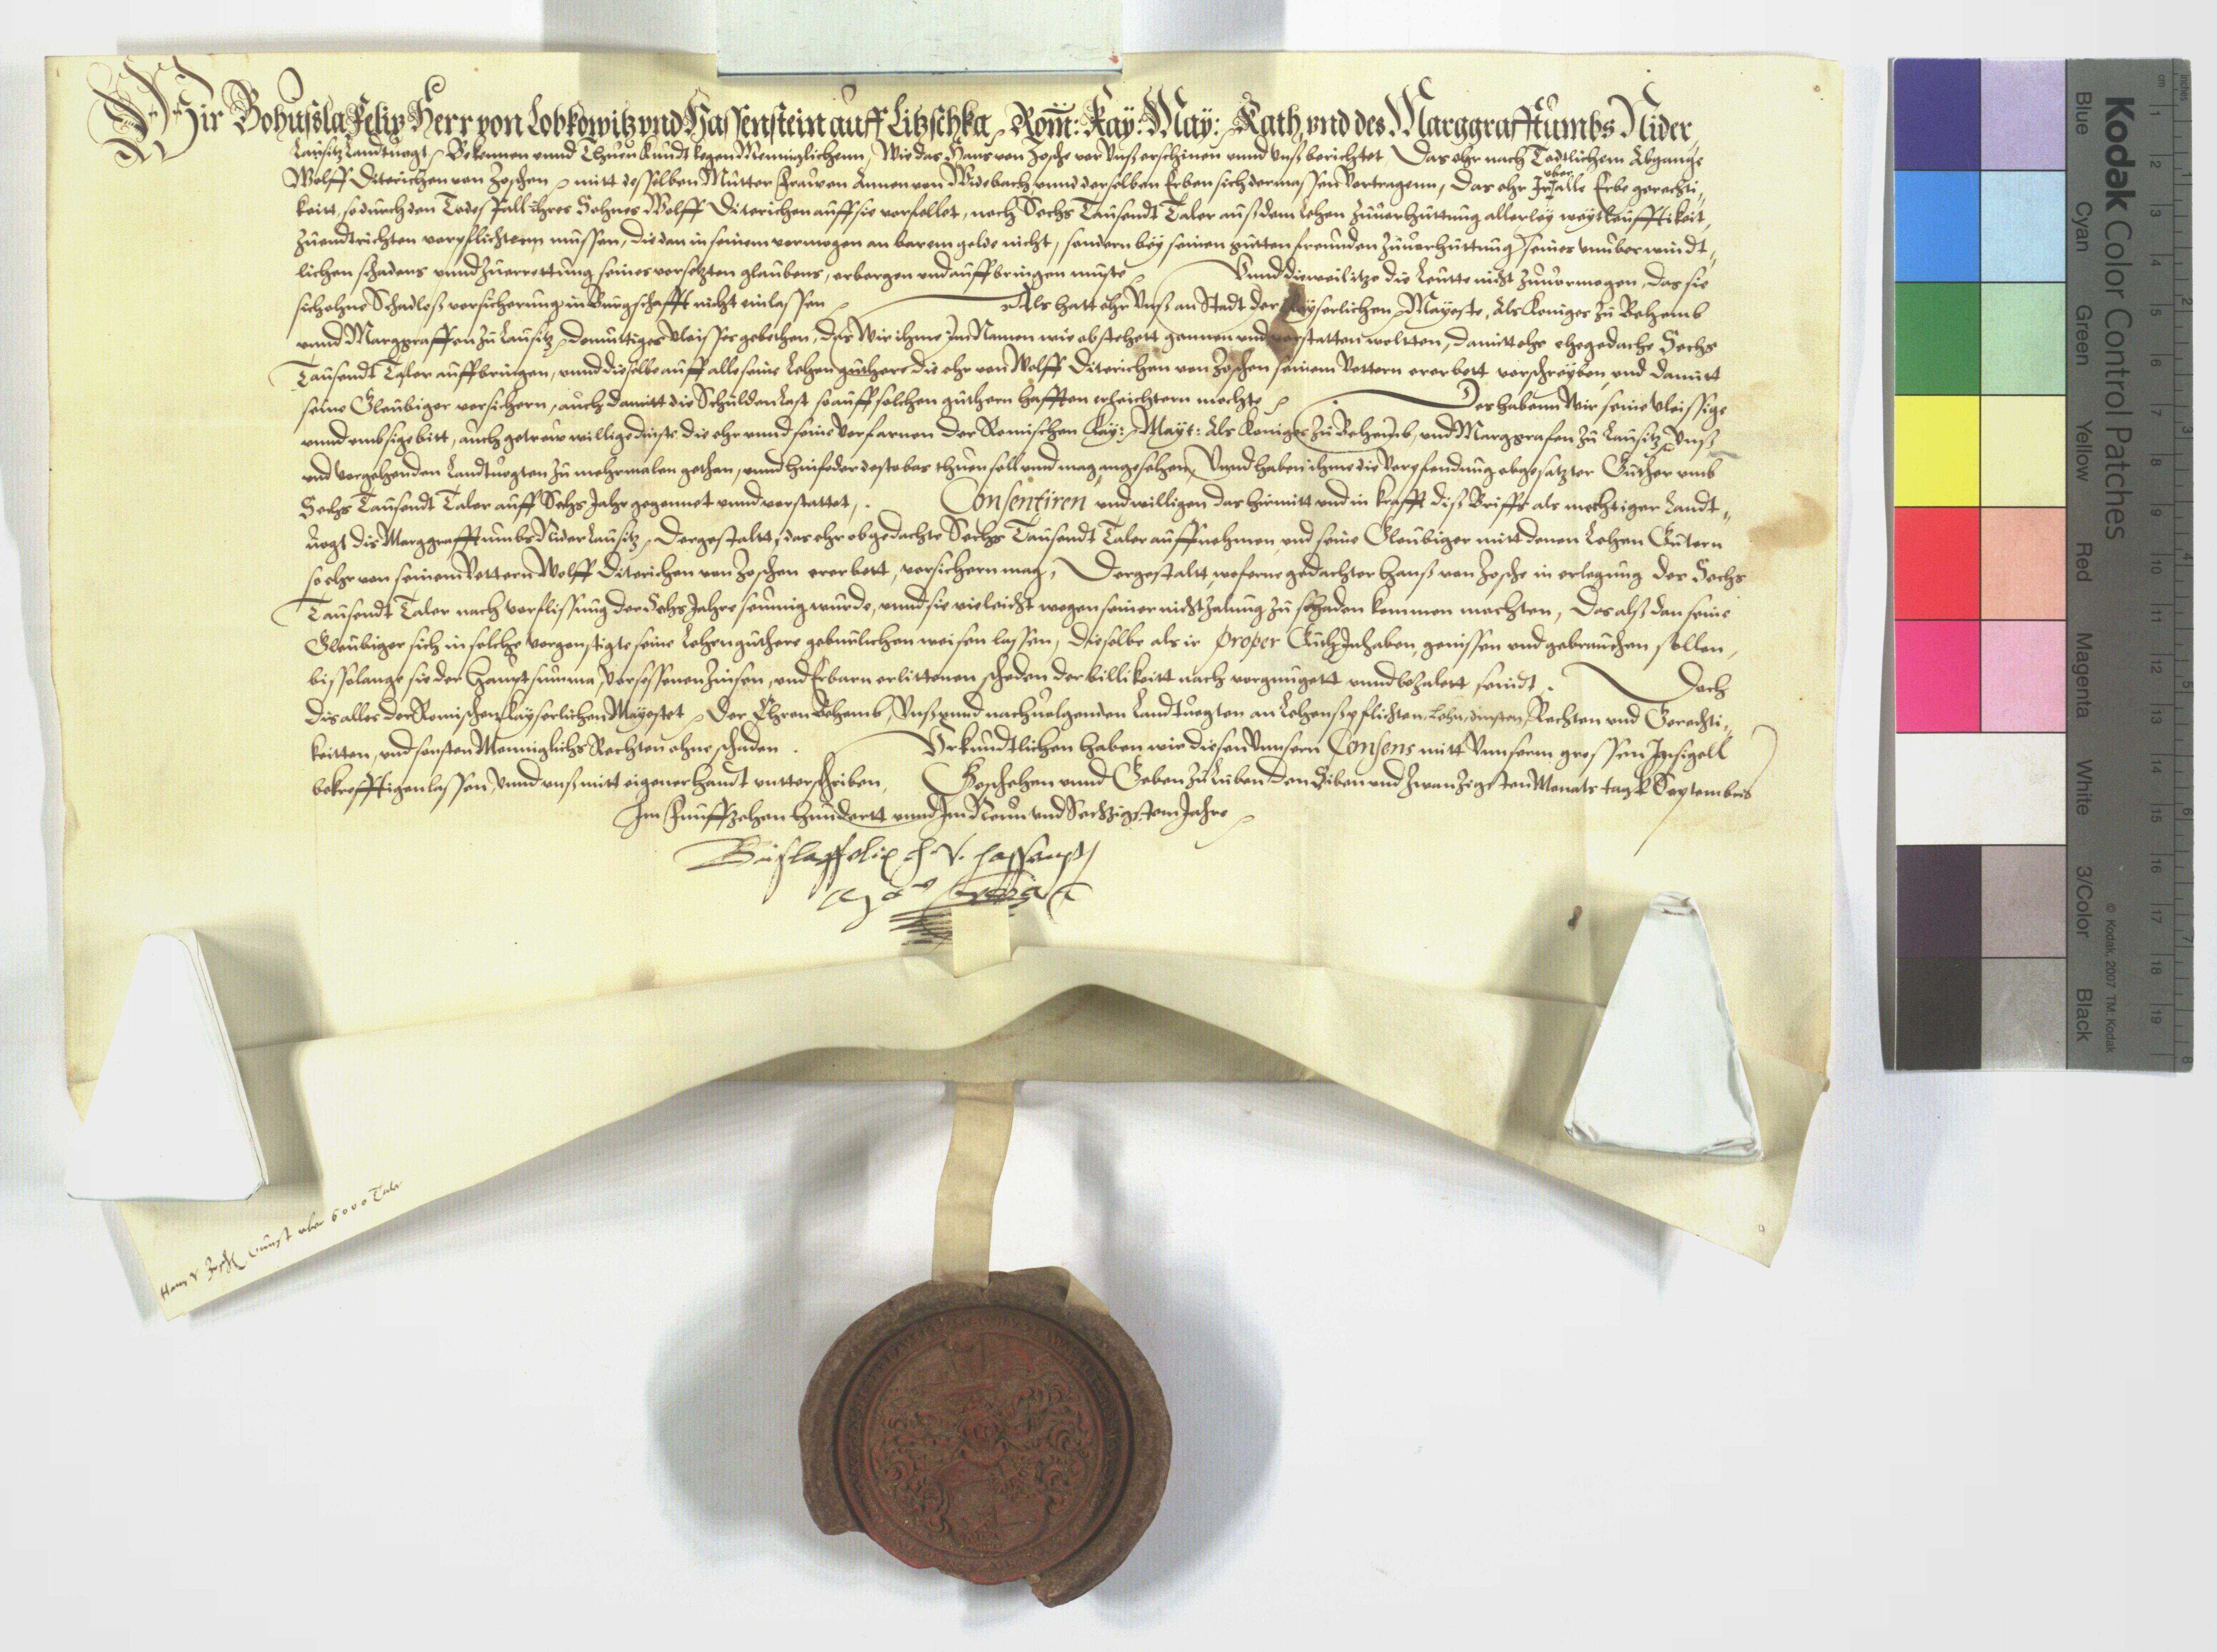 Wir Bohußla Felix Herr von Lobkowitz vnd Hassenstein auff Litzschka, Röm: Kay: May: Rath, vnd des Marggrafftumbs Nider,
Lausitz Landtuogt, Bekennen vnnd Thuen kundt kegen Menniglichenn, Wie das Hans von Zosche vor Vnß erschinen vnnd Vnß berichtet, Das ehr nach Todtlichem Abgange
Wolff Diterichen von Zoschen, mitt desselben Mutter Frawen Annen von Widebach, vnnd derselben Erben sich dermassen Vortragenn, Das ehr Ir vber alle Erbe gerechti,
keitt, so durch den Todes Fall ihres Sohnes Wolff Diterichen auff sie vorfellet, noch Sechs Tausendt Taler auß dem Lehen zuuorhuttung allerley weytleufftikeit,
zuendtrichten vorpflichtenn mussen, die dan in seinem vormogen an barem gelde nicht, sondern bey seinen gutten freunden zuuorhuttung seines vnuberwindt,
lichen schadens vnnd zuerrettung seines vorsetzten glaubens, erborgen vnd auffbringen muste, Vnnd dieweil itzo die Leutte nicht zuuormogen, das sie
sich ohne Schadloß vorsicherung in Burgschafft nicht einlassen, Als hatt ehr Vnß an Stadt der Kayserlichen Mayeste, Als Koniges zu Behemb
vnnd Marggraffen zu Lausitz, demuttiges vleisses gebethen, das Wir ihme Im Namen wie obstehett gonnen vnd vorstatten woltten, damitt ehr ehegedachte Sechs
Tausendt Taler auffbringen, vnnd dieselbe auff alle seine Lehengüthere die ehr von Wolff Diterichen von Zoschen seinem Vettern ererbett vorschreyben, vnd damitt
seine Gleubiger vorsichern, auch damitt die Schulden last so auff solchen güthern hafften erleichtern mochte, Des habenn Wir seine vleissige
vnnd embsige bitt, auch getrew willige dinste die ehr vnnd seine Vorfarnen der Romischen Kay: Mayt: Als Koniges zu Behemb, vnd Marggrafen zu Lausitz, Vnß
vnd vorgehenden Landtuogten zu mehrmalen gethan, vnnd hinfoder desto bas thuen soll vnnd mag angesehen, Vnnd haben ihme die Vorpfendung obgesatzter Güther vmb
Sechs Tausendt Taler auff Sechs Jahr gegonnet vnnd vorstattet, Consentiren vnd willigen das hirmitt vnd in krafft diß Briffs als mechtiger Landt,
uogt dis Marggrafftumbs Nider Lausitz, Dergestaltt, das ehr obgedachte Sechs Tausendt Taler auffnehmen, vnd seine Gleubiger mitt denen Lehen Gütern
so ehr von seinem Vettern Wolff Diterichen von Zoschen ererbett, vorsichern mag, Dergestaltt woferne gedachter Hanß von Zosche in erlegung der Sechs
Tausendt Taler nach vorflissung der Sechs Jahre seumig wurde, vnnd sie vieleicht wegen seiner nicht zalung zu schaden kommen mochten, Das alß dan seine
Gleubiger sich in solche vorgenstigte seine Lehengüthere geburlichen weisen lassen, dieselbe als ir proper Guth Inhaben, genissen vnd gebrauchen sollen,
bis solange sie der Hauptsumma, vorsessenen Zinsen, vnd Erbarn erlittenen scheden der billikeitt nach vorgnugett vnnd bezalett seindt, Doch
dis alles der Romischen Kayserlichen Mayestet, Der Chron Behemb, Vnß vnnd nachuolgenden Landtuogten an Lehenspflichten, Lehn, dinsten, Rechten vnd Gerechti,
keitten, vnd sonsten Menniglichs Rechten ohne schaden. Vrkundtlichen haben wir diesen Vnnsern Consens mitt Vnnserm grossen Insigell
bekrefftigen lassen, Vnnd vnß mitt eigener handt vntterschriben, Geschehen vnnd Geben zu Luben den Siben vnd zwanzigsten Monats tagk Septembris
Im Funffzehen Hundertt vnnd Im Neun vnd Sechzigstem Jahre
Buslaff felix h. v. hassenst
Hans v Zosch Gunst vber 6000 Taler
Kodak Color Control Patches
Blue Cyan Green Yellow Red Magenta White 3/Color Black
© Kodak, 2007 TM: Kodak
cm 1 2 3 4 5 6 7 8 9 10 11 12 13 14 15 16 17 18 19
inches 1 2 3 4 5 6 7 8